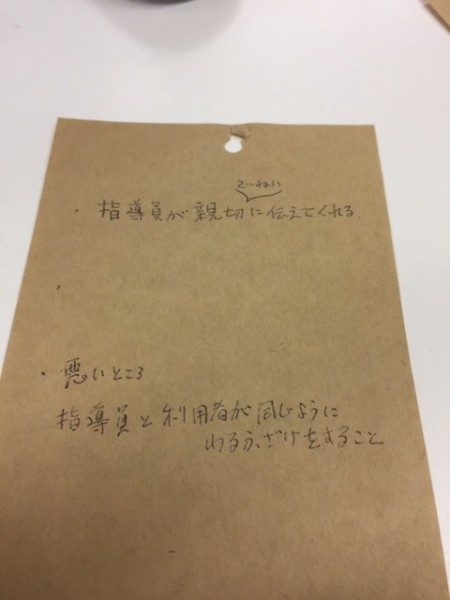 てーねい
・指導員が親切に伝えてくれる。
・悪いところ
指導員と利用者が同じように
わるふざけをすること